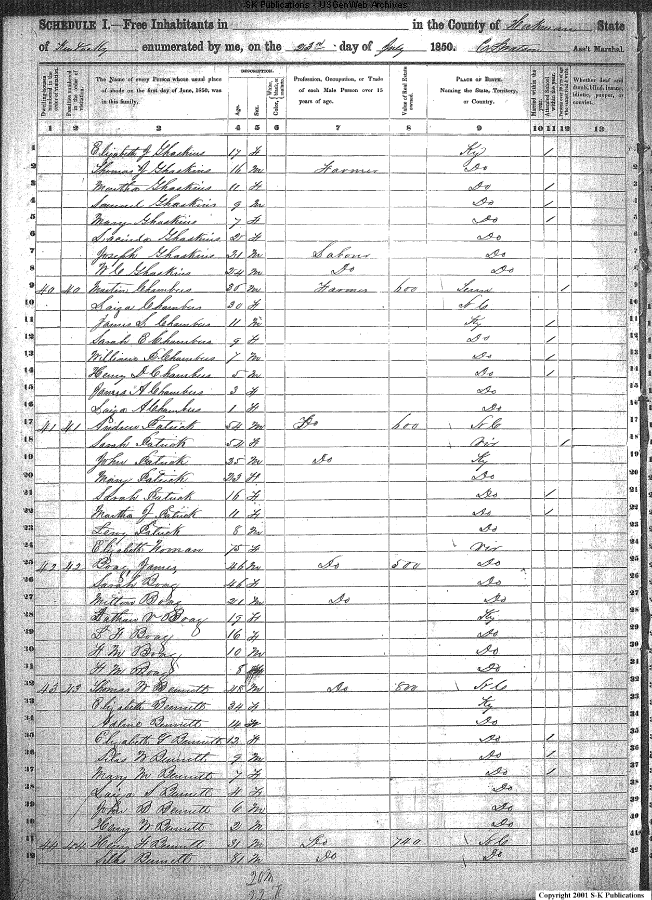 S-K Publications / USGenWeb Archives
SCHEDULE I.—Free Inhabitants in in the County of Hickman State
of Kentucky enumerated by me, on the 23rd day of July 1850. Ass't Marshal.
DESCRIPTION.
Dwelling-houses numbered in the order of visitation.
Families numbered in the order of visitation.
The Name of every Person whose usual place of abode on the first day of June, 1850, was in this family.
Age.
Sex.
Color, White, black, or mulatto.
Profession, Occupation, or Trade of each Male Person over 15 years of age.
Value of Real Estate owned.
PLACE OF BIRTH. Naming the State, Territory, or Country.
Married within the year.
Attended School within the year.
Whether deaf and dumb, blind, insane, idiotic, pauper, or convict.
1 2 3 4 5 6 7 8 9 10 11 12 13
1 Elizabeth J Ghaskins 17 F Ky 1
2 Thomas J Ghaskins 16 M Farmer Do
3 Martha Ghaskins 11 F Do 1
4 Samuel Ghaskins 9 M Do 1
5 Mary Ghaskins 7 F Do 1
6 Lucinda Ghaskins 2 F Do
7 Joseph Ghaskins 21 M Labour Do
8 W C Ghaskins 24 M Do Do
9 40 40 Martin Chambus 38 M Farmer 600 Tenn 1
10 Luiza Chambus 30 F N C
11 James S Chambus 11 M Ky 1
12 Sarah E Chambus 9 F Do 1
13 William B Chambus 7 M Do 1
14 Henry D Chambus 5 M Do 1
15 James A Chambus 3 F Do
16 Luiza A Chambus 1 F Do
17 41 41 Andrew Patrick 54 M Do 600 N C
18 Sarah Patrick 52 F Vir 1
19 John Patrick 25 M Do Ky
20 Mary Patrick 23 F Do
21 Sarah Patrick 16 F Do 1
22 Martha J Patrick 11 F Do 1
23 Levy Patrick 8 M Do
24 Elizabeth Noman 75 F Vir
25 42 42 Boaz James 46 M Do 500 Do
26 Sarah Boaz 46 F Do
27 Milton Boaz 21 M Do Do
28 V Boaz 17 Ky
29 L F Boaz 16 F Do
30 H M Boaz 10 M Do
31 F M Boaz 8 Do
32 43 43 Thomas W Bennett 48 M Do 800 N C
33 Elizabeth Bennett 34 F Ky
34 Adline Bennett 14 F Do
35 Elizabeth F Bennett 12 F Do 1
36 Silas W Bennett 9 M Do 1
37 Mary M Bennett 7 F Do 1
38 Luiza S Bennett 4 F Do
39 John B Bennett 6 M Do
40 Henry W Bennett 2 M Do
41 44 44 Henry F Bennett 31 M Do 740 N C
42 Silas Bennett 81 M Do Do
20 M
22 F
Copyright 2001 S-K Publications